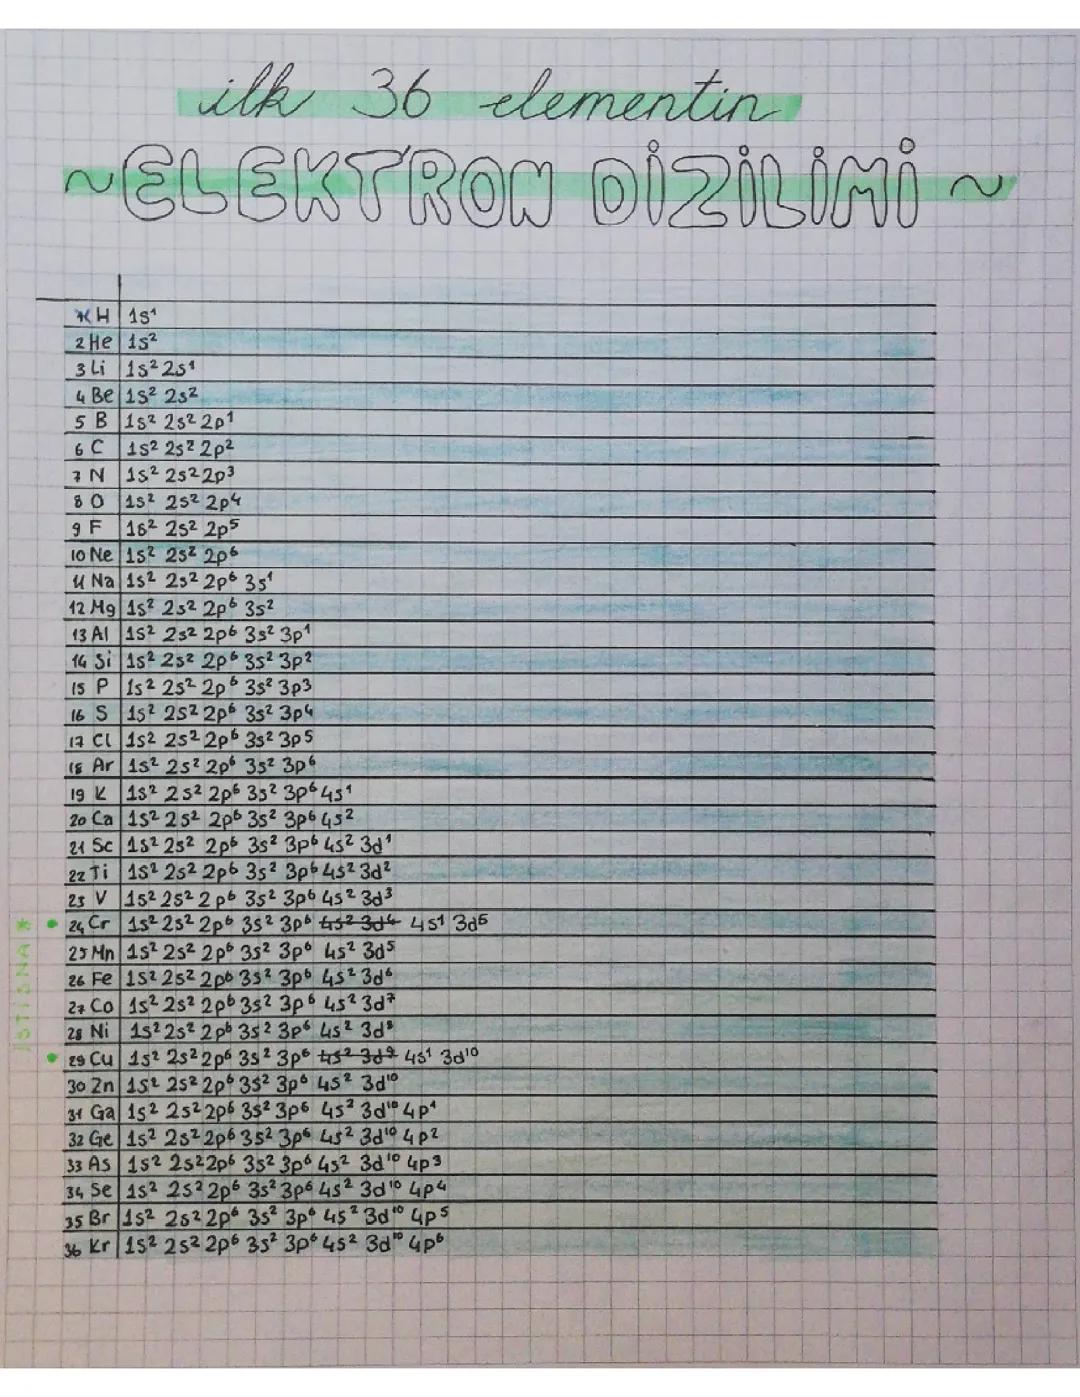 ilk 36 elementin
~ELEKTRON DİZİLİMİ~
H 1s¹
2 He 1s²
3 Li 1s² 2s¹
4 Be 1s² 2s²
5 B 1s² 2s² 2p¹
6 C 1s² 2s² 2p²
7 N 1s² 2s² 2p³
8 O 1s² 2s² 2p⁴
9 F 1s² 2s² 2p⁵
10 Ne 1s² 2s² 2p⁶
11 Na 1s² 2s² 2p⁶ 3s¹
12 Mg 1s² 2s² 2p⁶ 3s²
13 Al 1s² 2s² 2p⁶ 3s² 3p¹
14 Si 1s² 2s² 2p⁶ 3s² 3p²
15 P 1s² 2s² 2p⁶ 3s² 3p³
16 S 1s² 2s² 2p⁶ 3s² 3p⁴
17 Cl 1s² 2s² 2p⁶ 3s² 3p⁵
18 Ar 1s² 2s² 2p⁶ 3s² 3p⁶
19 K 1s² 2s² 2p⁶ 3s² 3p⁶ 4s¹
20 Ca 1s² 2s² 2p⁶ 3s² 3p⁶ 4s²
21 Sc 1s² 2s² 2p⁶ 3s² 3p⁶ 4s² 3d¹
22 Ti 1s² 2s² 2p⁶ 3s² 3p⁶ 4s² 3d²
23 V 1s² 2s² 2p⁶ 3s² 3p⁶ 4s² 3d³
İSTİSNA *
• 24 Cr 1s² 2s² 2p⁶ 3s² 3p⁶ 4s² 3d⁴ 4s¹ 3d⁵
25 Mn 1s² 2s² 2p⁶ 3s² 3p⁶ 4s² 3d⁵
26 Fe 1s² 2s² 2p⁶ 3s² 3p⁶ 4s² 3d⁶
27 Co 1s² 2s² 2p⁶ 3s² 3p⁶ 4s² 3d⁷
28 Ni 1s² 2s² 2p⁶ 3s² 3p⁶ 4s² 3d⁸
• 29 Cu 1s² 2s² 2p⁶ 3s² 3p⁶ 4s² 3d⁹ 4s¹ 3d¹⁰
30 Zn 1s² 2s² 2p⁶ 3s² 3p⁶ 4s² 3d¹⁰
31 Ga 1s² 2s² 2p⁶ 3s² 3p⁶ 4s² 3d¹⁰ 4p¹
32 Ge 1s² 2s² 2p⁶ 3s² 3p⁶ 4s² 3d¹⁰ 4p²
33 As 1s² 2s² 2p⁶ 3s² 3p⁶ 4s² 3d¹⁰ 4p³
34 Se 1s² 2s² 2p⁶ 3s² 3p⁶ 4s² 3d¹⁰ 4p⁴
35 Br 1s² 2s² 2p⁶ 3s² 3p⁶ 4s² 3d¹⁰ 4p⁵
36 Kr 1s² 2s² 2p⁶ 3s² 3p⁶ 4s² 3d¹⁰ 4p⁶